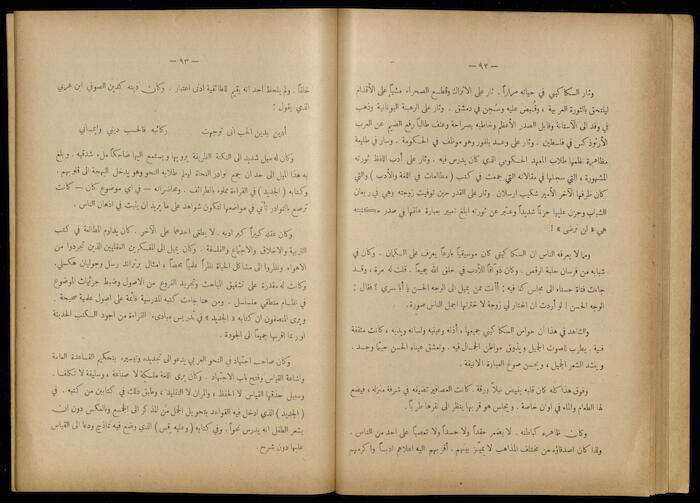 — ٩٢ —
وثار السكاكيني في حياته مراراً. ثار على الاتراك وقطع الصحراء مشياً على الأقدام
ليلتحق بالثورة العربية، وقُبض عليه وسُجن في دمشق. وثار على الرهبنة اليونانية وذهب
في وفد الى الآستانة وقابل الصدر الأعظم وخاطبه بصراحة وعنف طالباً رفع الضيم عن العرب
الأرثوذكس في فلسطين. وثار على وعد بلفور وهو موظف في الحكومة. وسار في طليعة
مظاهرة نظمها طلاب المعهد الحكومي الذي كان يدرس فيه. وثار على أدب اللفظ ثورته
المشهورة، التي سجلها في مقالاته التي جمعت في كتب (مطالعات في اللغة والأدب) والتي
كان طرفها الآخر الأمير شكيب ارسلان. وثار على القدر حين توفيت زوجته وهي في ريعان
الشباب وحزن عليها حزناً شديداً وعبّر عن ثورته ابلغ تعبير بعبارة علقها في صدر مكتبته
هي « لن نرضى »!
ومما لا يعرفه الناس ان السكاكيني كان موسيقياً بارعاً يعرف على الكمان. وكان في
شبابه من فرسان حلبة الرقص. وكان ذوّاقاً للأدب في خلق الله جميعاً. قلت له مرة، وقد
جاءت فتاة حسناء الى مجلس كنا فيه: أأنت ممن يميل الى الوجه الحسن يا أبا سري؟ فقال:
الوجه الحسن! لو أردت ان اختار لي زوجة لاخترتها اجمل الناس صورة.
والشاهد في هذا ان حواس السكاكيني جميعها، أذنه وعينيه ولسانه ويديه، كانت مثقفة
فنية. يطرب للصوت الجميل ويذوق مواطن الجمال فيه. وتعشق عيناه الحسن حيثما وجد.
وينشد الشعر الجميل، ويحسن صوغ العبارة الانيقة.
وفوق هذا كله كان قلبه يفيض نبلاً ورقة. كانت العصافير تضيفه في شرفة منزله، فيضع
لها الطعام والماء في اوان خاصة. ويجلس هو قربها ينظر الى نقرها طرباً.
وكان ظاهره كباطنه. لا يضمر حقداً ولا حسداً ولا تعصباً على احد من الناس.
ولذا كان اصدقاؤه من مختلف المذاهب لا يميّز بينهم. أقربهم اليه اعلاهم ادباً واكرمهم
— ٩٣ —
خلقاً. ولم يلحظ احد انه يقيم للطائفية ادنى اعتبار. وكان دينه كدين الصوفي ابن عربي
الذي يقول:
أدين بدين الحب انى توجهت ركائبه فالحب ديني وايماني
وكان له ميل شديد الى النكتة الظريفة يرويها ويستمع اليها ضاحكاً ملء شدقيه. وبلغ
به هذا الميل الى حد ان جمع نوادر النحاة ليعلم طلابه النحو وهو يدخل البهجة الى قلوبهم.
وكتابه (الجديد) في القراءة مملوء بالطرائف. ومحاضراته — في اي موضوع كان — كانت
ترصع بالنوادر تأتي في مواضعها لتكون شواهد على ما يريد ان يثبت في اذهان الناس.
وكان عقله كبيراً كبر ادبه. لا يطغى احدهما على الآخر. كان يداوم المطالعة في كتب
التربية والاخلاق والاجتماع والفلسفة. وكان يميل الى المفكرين العقليين الذين تجردوا من
الاهواء ونظروا الى مشاكل الحياة نظراً علمياً محضاً، امثال برتراند رسل وجوليان هكسلي.
وكانت له مقدرة على تشقيق المباحث وتجريد الفروع من الاصول وضبط جزئيات الموضوع
في نظام منطقي متسلسل. ومن هنا جاءت كتبه المدرسية قائمة على اصول علمية صحيحة.
ويرى المنصفون ان كتابه « الجديد » في تدريس مبادىء القراءة من اجود الكتب الحديثة
او ربما اقربها جميعاً الى الجودة.
وكان صاحب اجتهاد في النحو العربي يدعو الى تجديده وتيسيره بتحكيم القاعدة العامة
واشاعة القياس وفتح باب الاجتهاد. وكان يرى اللغة ملكة لا صناعة، وسليقة لا تكلفاً.
وسبيل حذقها القياس لا الحفظ، والمران لا التقليد، وطبق ذلك في كتابين من كتبه. في
(الجديد) الذي ادخل فيه القواعد بتحويل الجمل من المذكر الى الجمع والعكس دون ان
يشعر الطفل انه يدرس نحواً. وفي كتابه (وعليه قس) الذي وضع فيه نماذج ودعا الى القياس
عليها دون شرح.